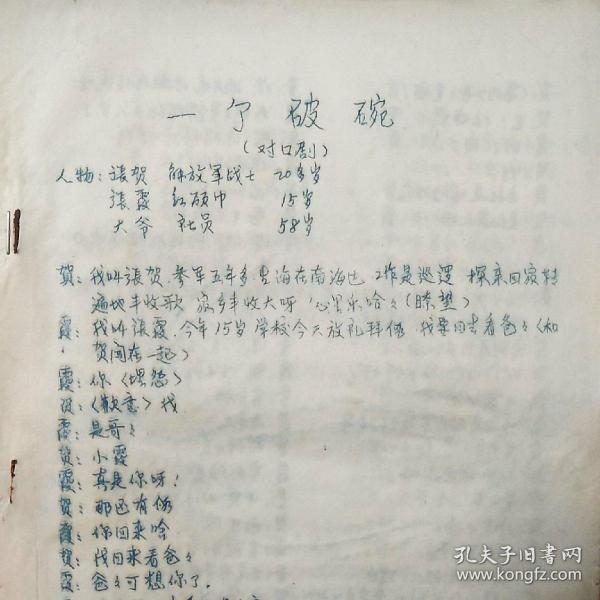 一个破碗
(对口剧)
人物：張贺 解放军战士 20多岁
張霞 红领巾 15岁
大爷 社员 58岁
贺：我叫張贺.参军五年多 在南海边 工作是巡逻 探亲回家转
遍地丰收歌 家乡丰收大呀 心里乐哈々(瞭望)
霞：我叫張霞.今年15岁 学校今天放礼拜 我要回去看爸々(和
贺闯在一起)
霞：你〈埋怨〉
贺：〈歉意〉我
霞：是哥々
贺：小霞
霞：真是你呀！
贺：那还有假
霞：你回来啥
贺：我回来看爸々
霞：爸々可想你了.
孔夫子旧书网
www.kongfz.com